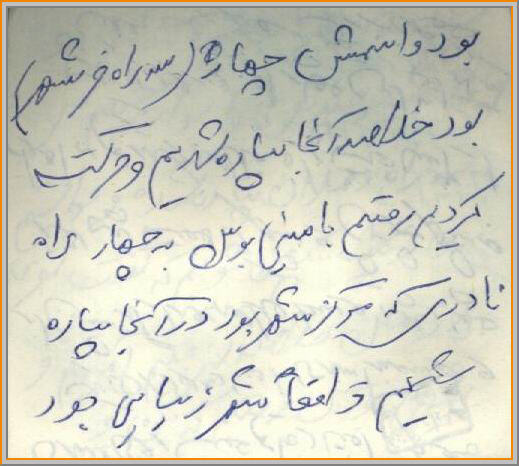 بود و اسمش چهار (سه راه خرمشهر)
بود خلاصه آنجا پیاده شدیم و حرکت
کردیم رفتیم با مینی بوس به چهار راه
نادری که مرکز شهر بود در آنجا پیاده
شدیم واقعاً شهر زیبایی بود